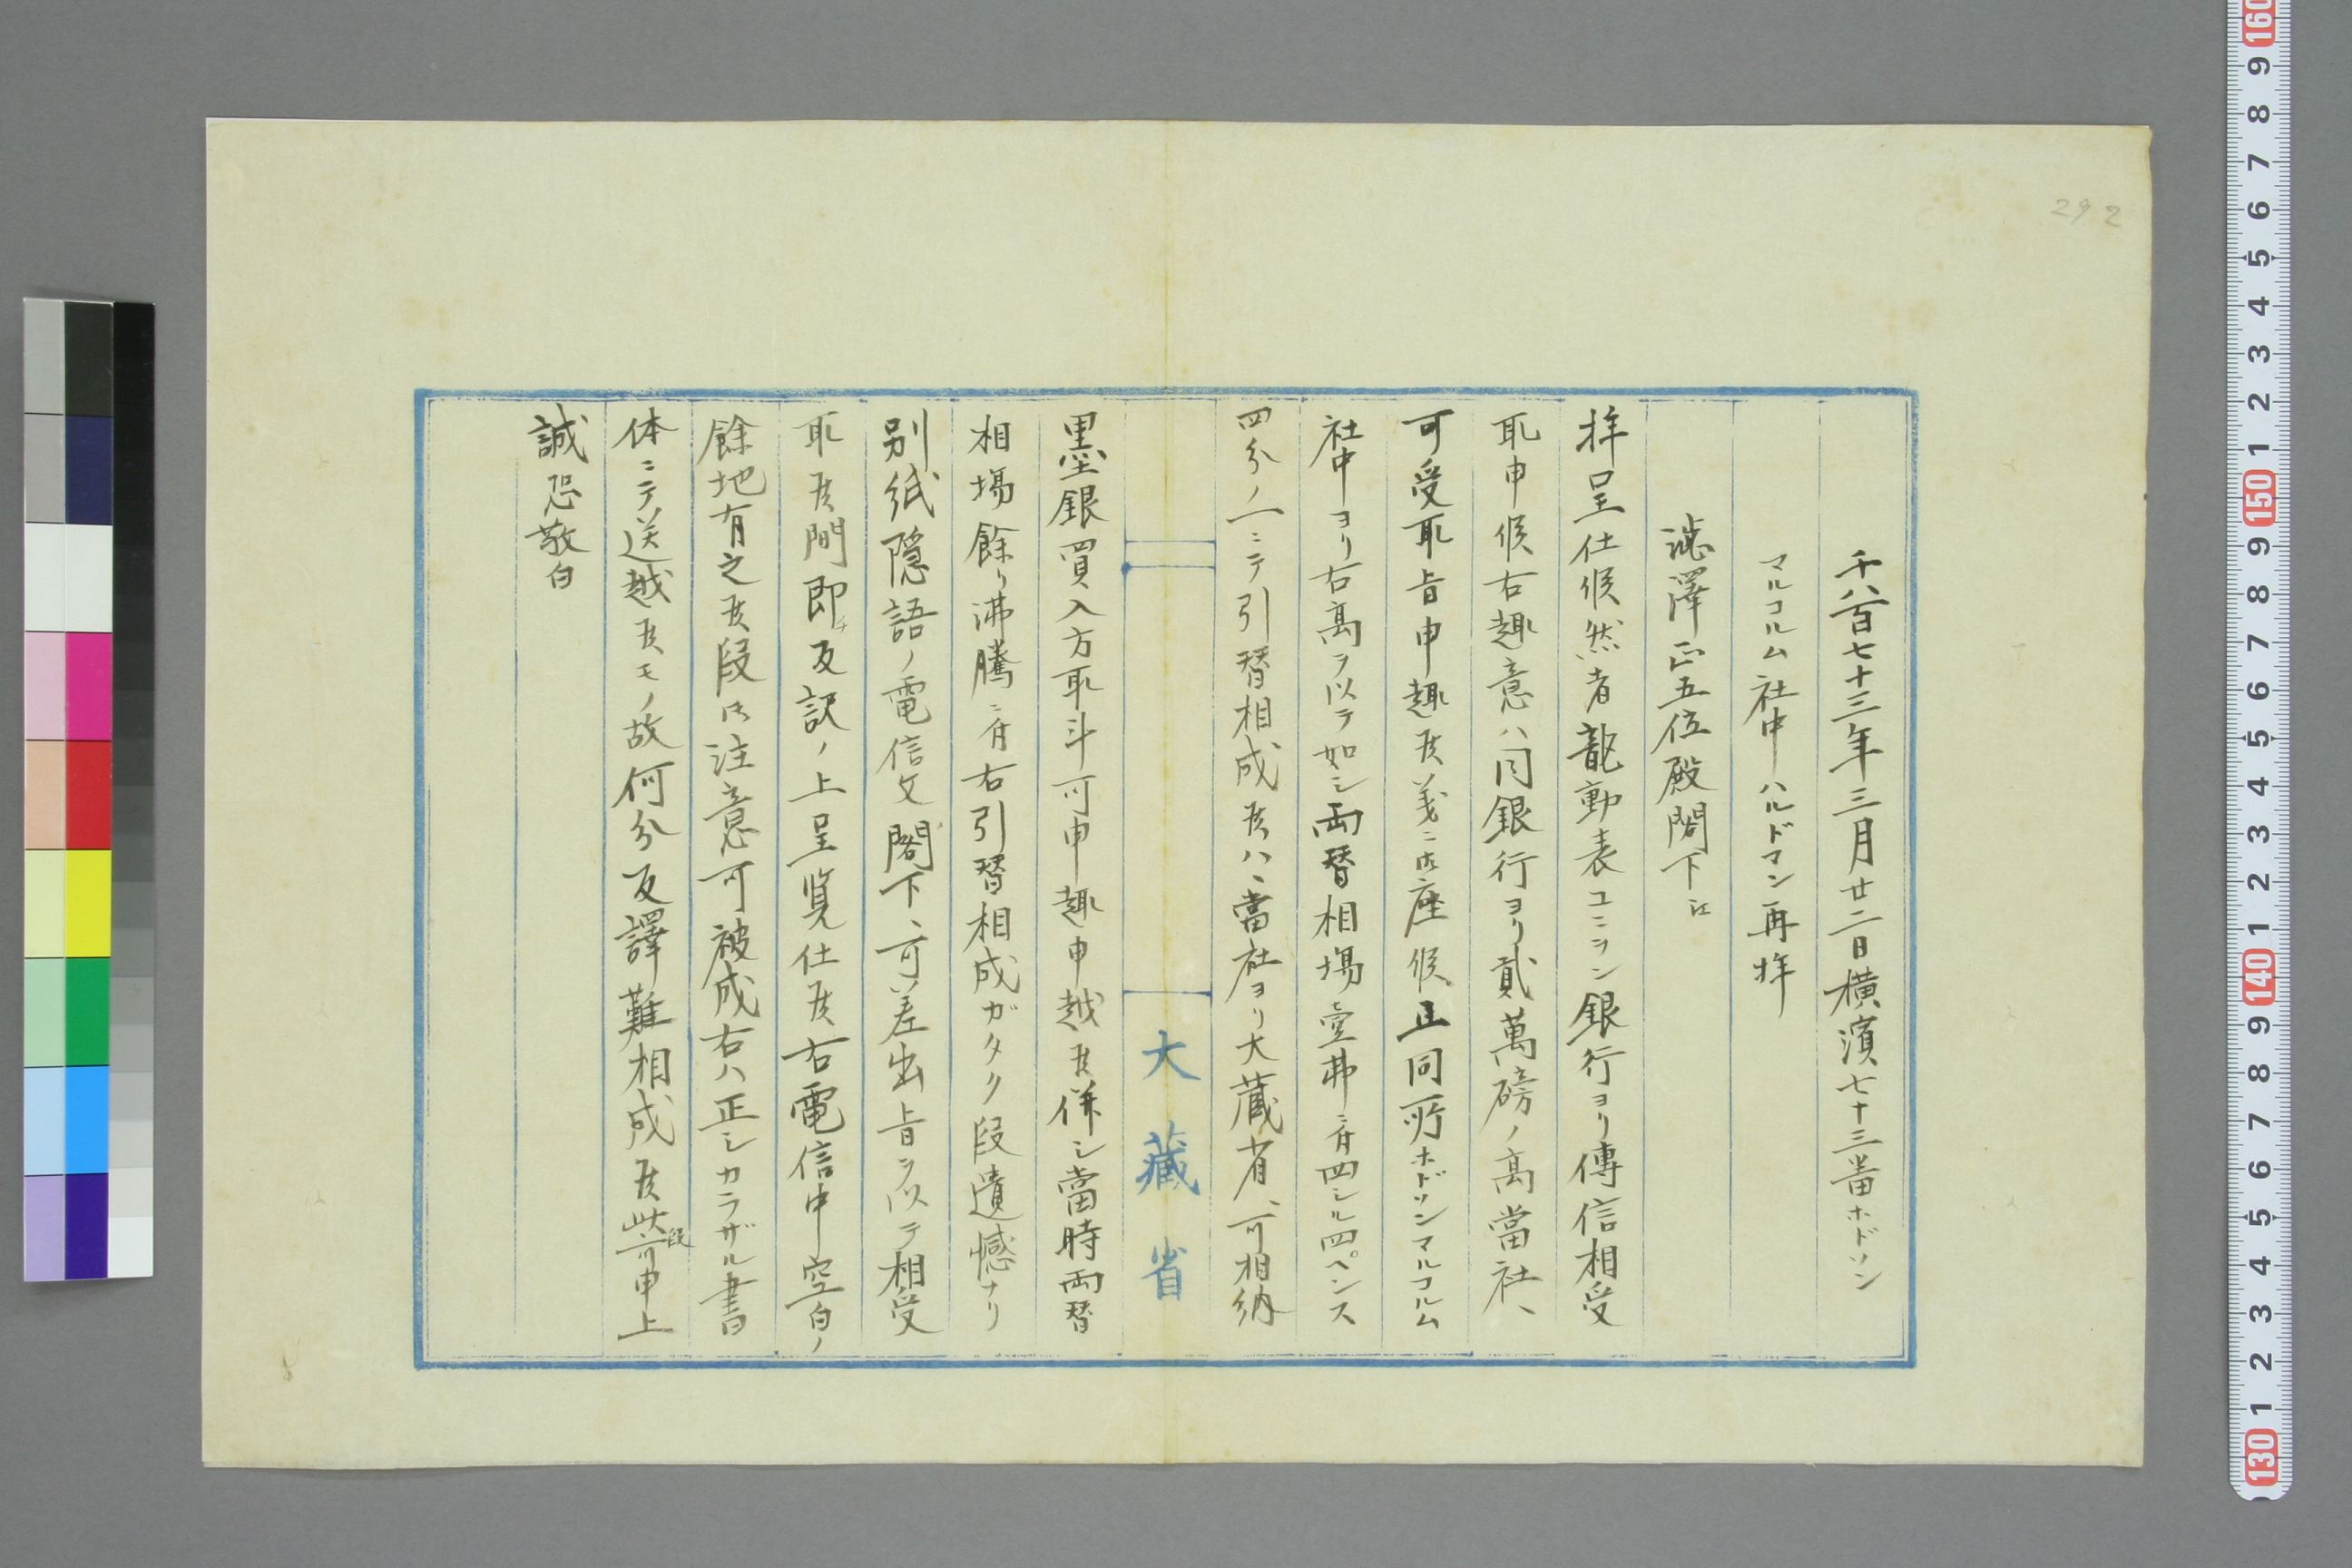 292
千八百七十三年三月廿二日横濱七十三番ホドソン
マルコルム社中ハルドマン再拝
澁澤正五位殿閣下江
拝呈仕候然者龍動表ユニヲン銀行ヨリ傳信相受
取申候右趣意ハ同銀行ヨリ貳萬磅ノ高當社ヘ
可受取旨申趣候義ニ御座候正同所ホドソンマルコルム
社中ヨリ右高ヲ以テ如シ両替相場壹弗ニ付四シル四ペンス
四分ノ一ニテ引替相成候ハヽ當社ヨリ大蔵省ヘ可相納
墨銀買入方取斗可申趣申越候併シ當時両替
相場餘リ沸騰ニ付右引替相成ガタク段遺憾ナリ
別紙隠語ノ電信文閣下ヘ可差出旨ヲ以テ相受
取候間即チ反訳ノ上呈覧仕候右電信中空白ノ
餘地有之候段御注意可被成右ハ正シカラザル書
体ニテ送越候モノ故何分反譯難相成候此段可申上
誠恐敬白
大藏省
160
9
8
7
6
5
4
3
2
1
150
9
8
7
6
5
4
3
2
1
140
9
8
7
6
5
4
3
2
1
130